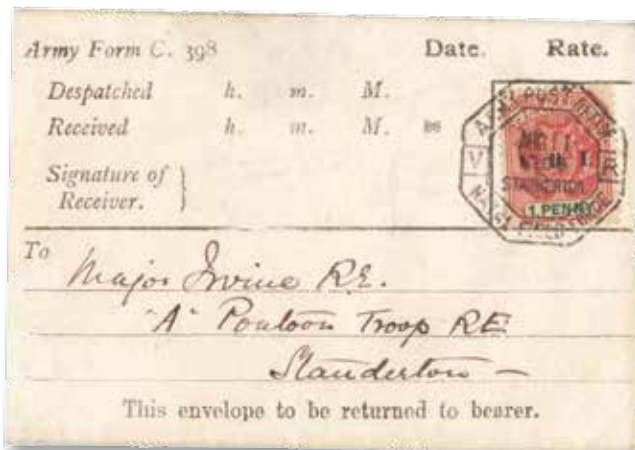 Army Form C. 398 Date. Rate.
Despatched h. m. M.
Received h. m. M.
Signature of
Receiver.
ARMY POST OFFICE
V R
STANDERTON
1. PENNY
NATAL FIELD FORCE
To
Major Irvine R.E.
"A" Pontoon Troop RE
Standerton —
This envelope to be returned to bearer.